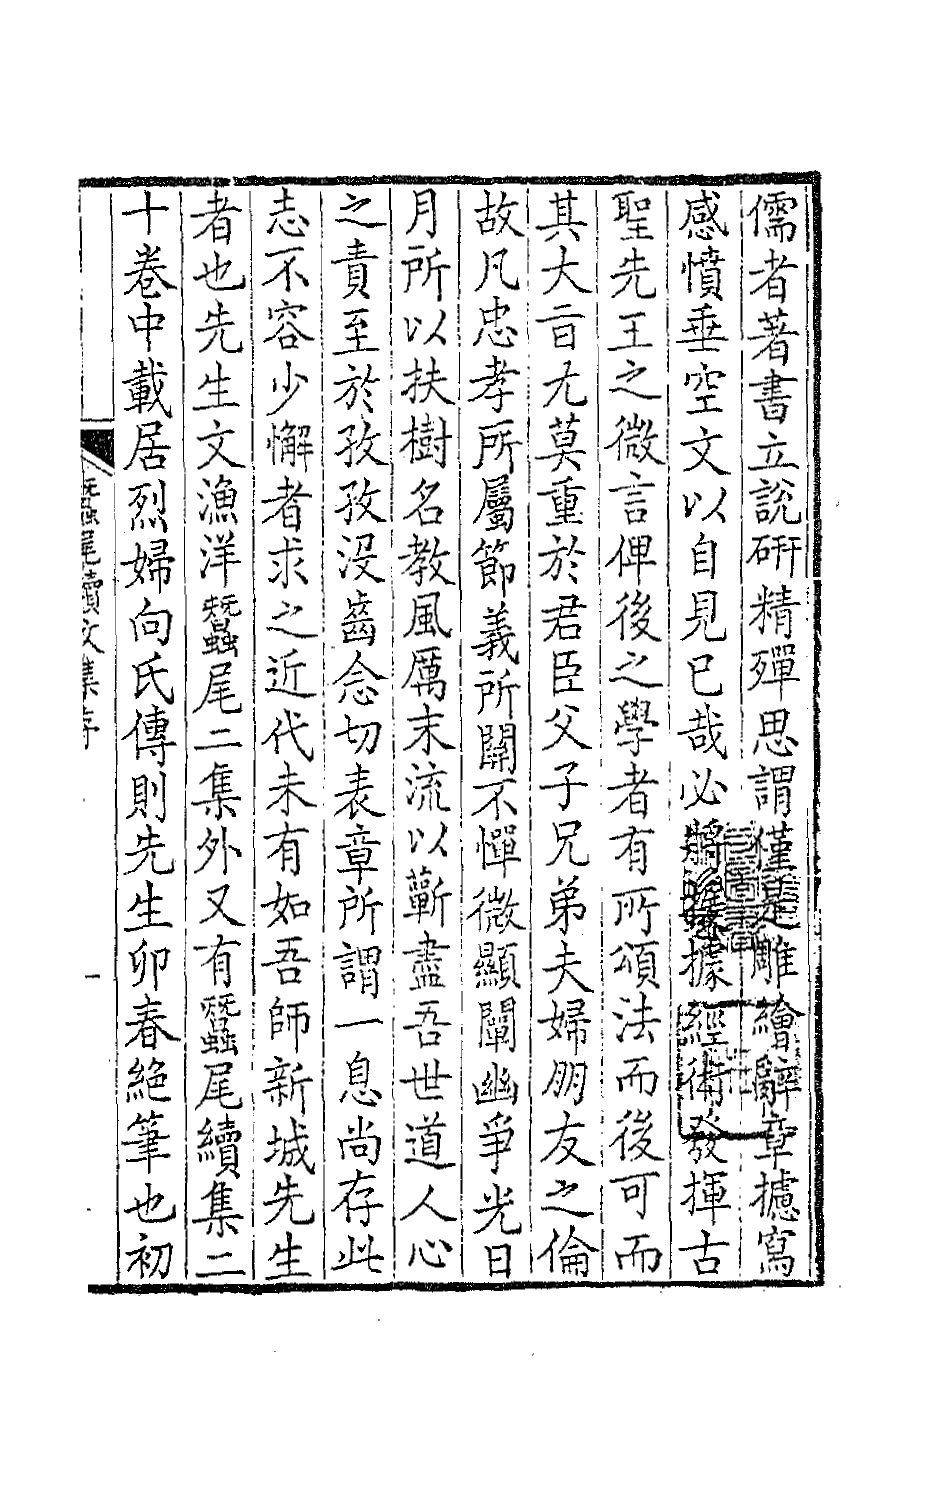 儒者著書立說研精殫思謂僅是雕繪辭章攄寫
感憤垂空文以自見已哉必將據經術發揮古
聖先王之微言俾後之學者有所頌法而後可而
其大旨尤莫重於君臣父子兄弟夫婦朋友之倫
故凡忠孝所屬節義所關不憚微顯闡幽爭光日
月所以扶樹名教風厲末流以蘄盡吾世道人心
之責至於孜孜没齒念切表章所謂一息尚存此
志不容少懈者求之近代未有如吾師新城先生
者也先生文漁洋蠶尾二集外又有蠶尾續集二
十卷中載居烈婦向氏傳則先生卯春絶筆也初
蠶尾續文集序
一